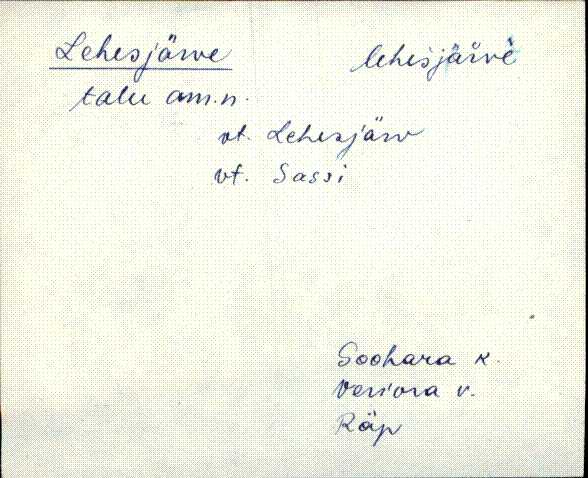 Lehesjärve lehesjärvè
talu am.n.
vt. Lehesjärv
vt. Sassi
Soohara k.
Veriora v.
Räp